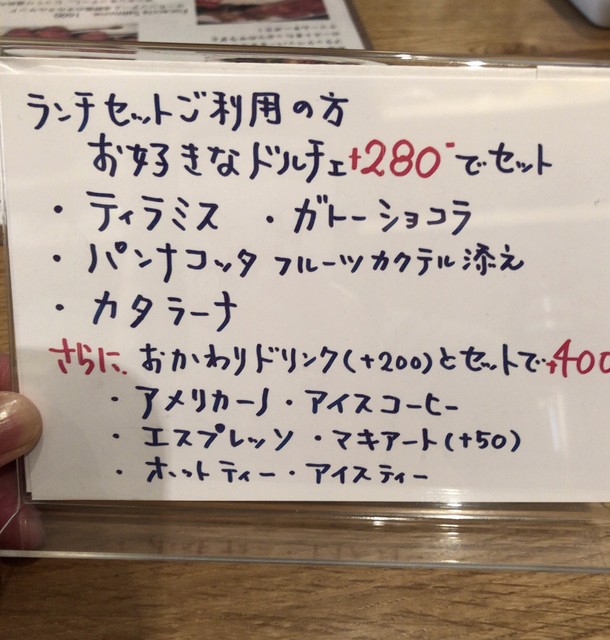 ランチセットご利用の方
お好きなドルチェ+280-でセット
・ティラミス ・ガトーショコラ
・パンナコッタ フルーツカクテル添え
・カタラーナ
さらに、おかわりドリンク(+200)とセットで+400
・アメリカーノ・アイスコーヒー
・エスプレッソ・マキアート(+50)
・ホットティー・アイスティー